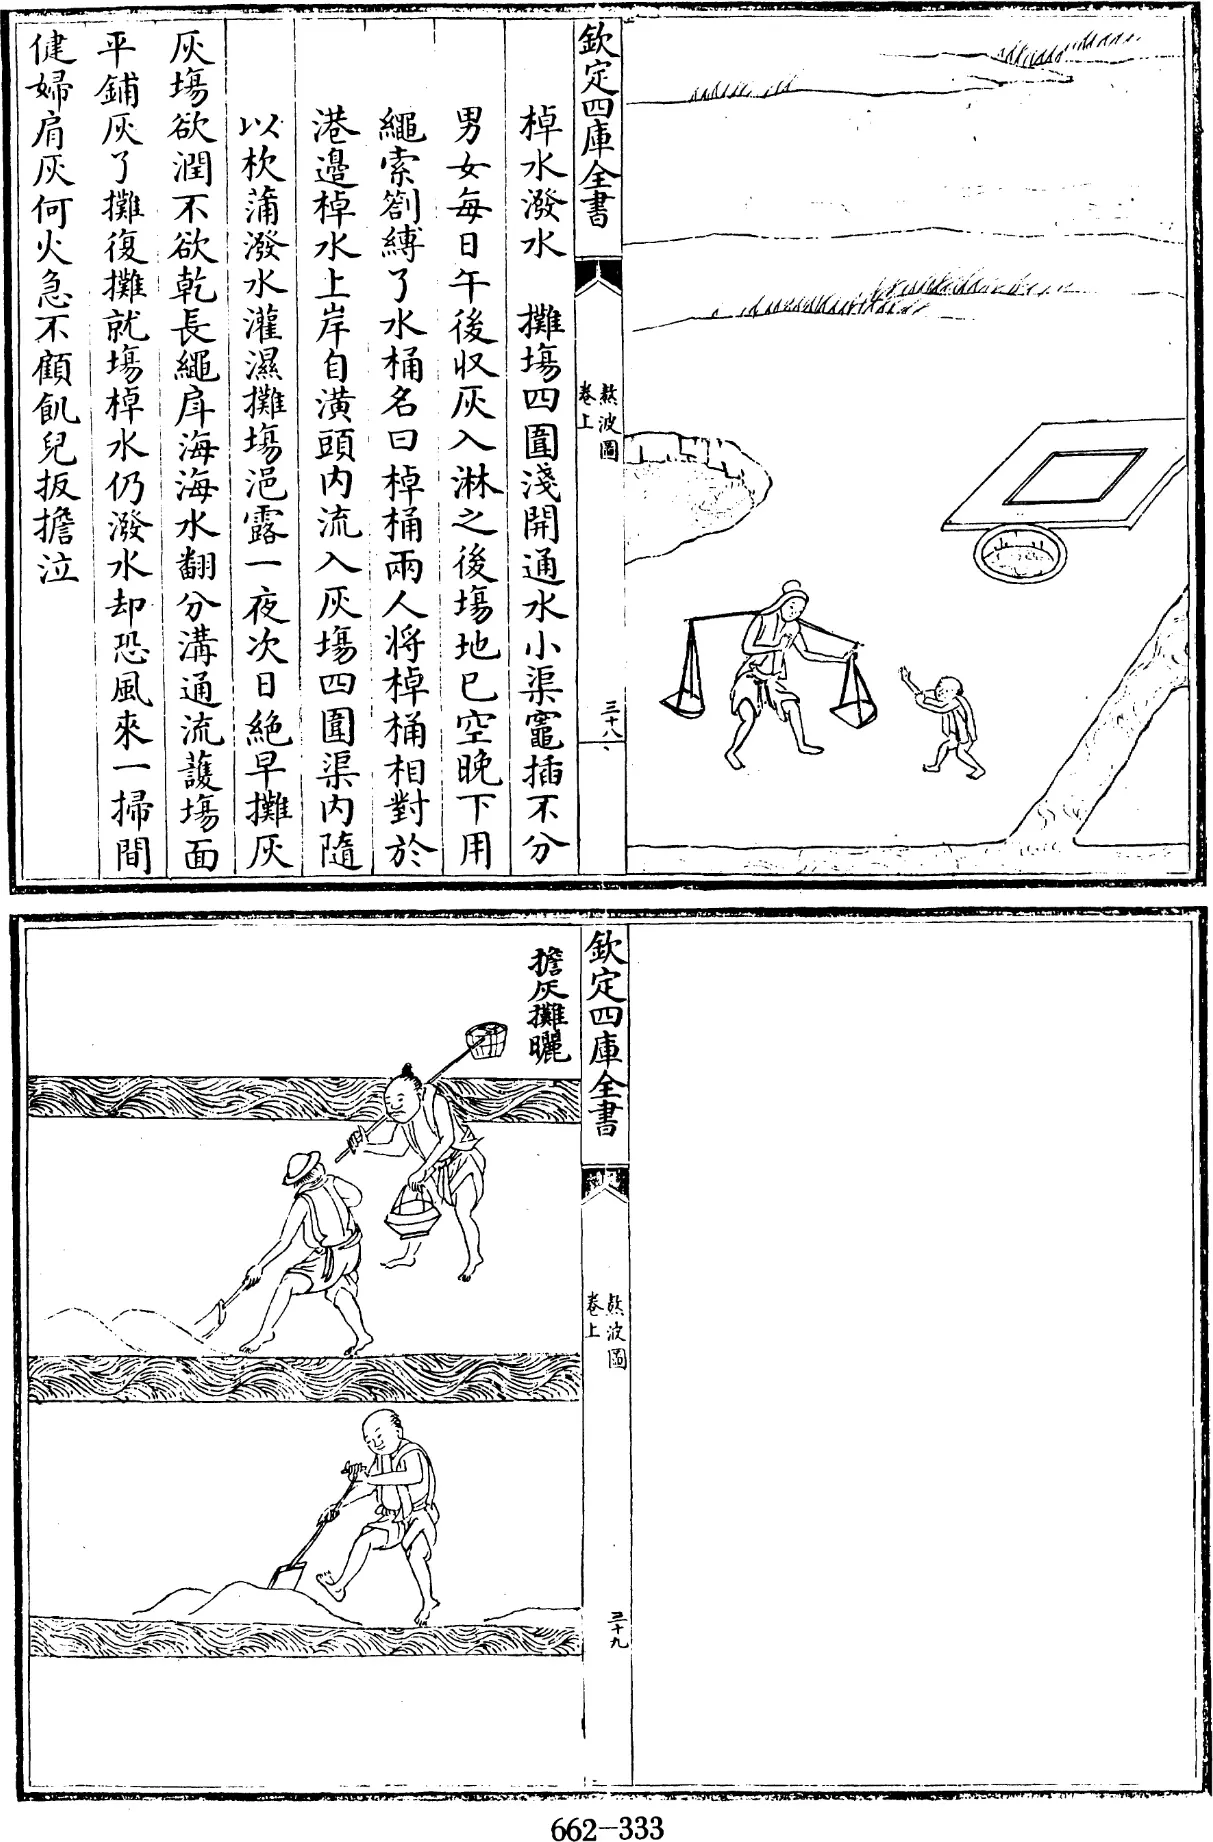 欽定四庫全書
熬波圖
卷上
三十八
棹水潑水　攤塲四圍淺開通水小渠竈插不分
男女每日午後収灰入淋之後塲地已空晚下用
繩索劄縛了水桶名曰棹桶兩人將棹桶相對於
港邉棹水上岸自潢頭内流入灰塲四圍渠内隨
以杴蒲潑水灌濕攤塲浥露一夜次日絶早攤灰
灰塲欲潤不欲乾長繩戽海海水翻分溝通流護塲面
平鋪灰了攤復攤就塲棹水仍潑水却恐風來一掃間
健婦肩灰何火急不顧飢兒扳擔泣
欽定四庫全書
熬波圖
卷上
三十九
擔灰攤曬
662-333